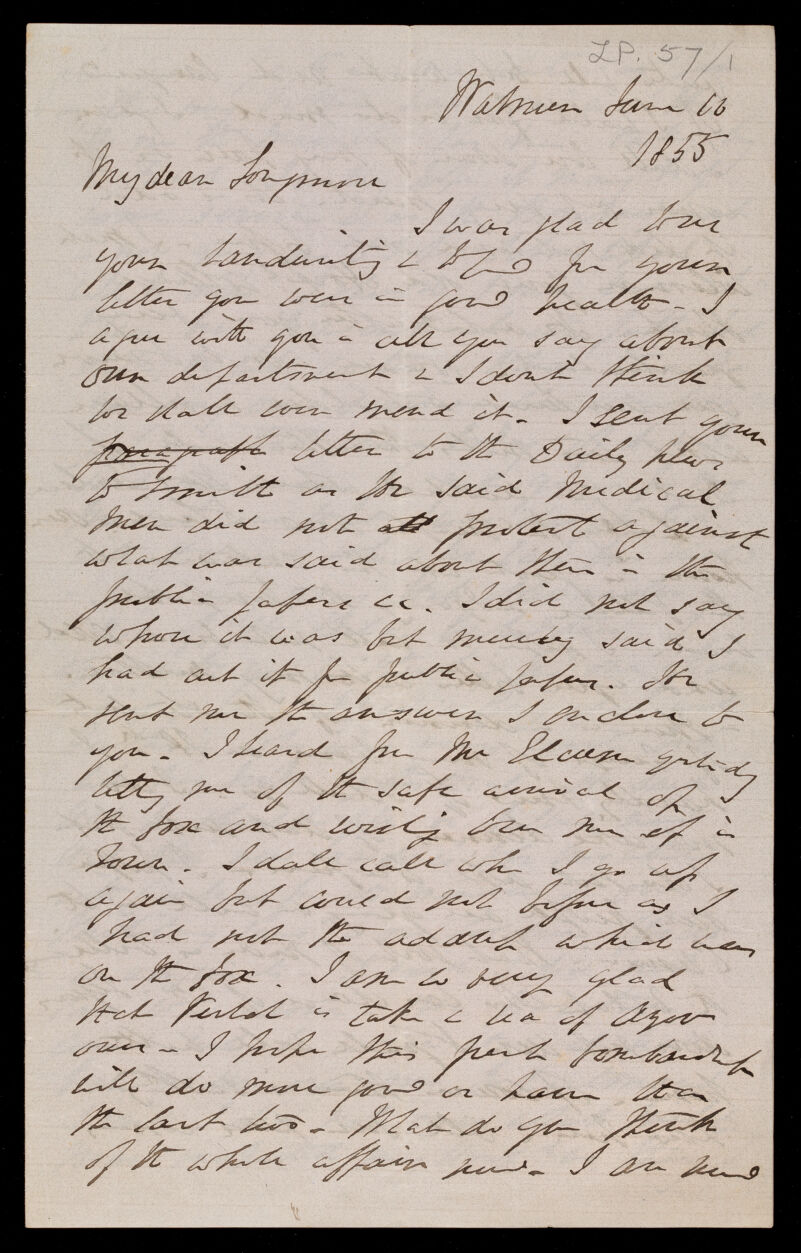 LP. 57/1
Walmer June 10
1855
My dear Longmore
I was glad to see
your handwriting & to find from your
letter you were in good health - I
agree with you in all you say about
our department & I don't think
we shall ever mend it. I sent your
paragraph letter to the Daily News
to Smith as he said Medical
Men did not protest against
what was said about them in the
public papers &c. I did not say
whose it was but merely said I
had cut it from public paper. He
sent me the answer I enclose to
you - I heard from Mr yesterday
telling me of the safe arrival of
the box and wishing to see me if in
Town. I shall call when I go up
again but could not before as I
had not the address which was
on the box. I am so very glad
that Kertch is taken & sea of Azov
ours - I hope this fresh bombardment
will do more good or harm than
the last two - What do you think
of the whole affair now - I am